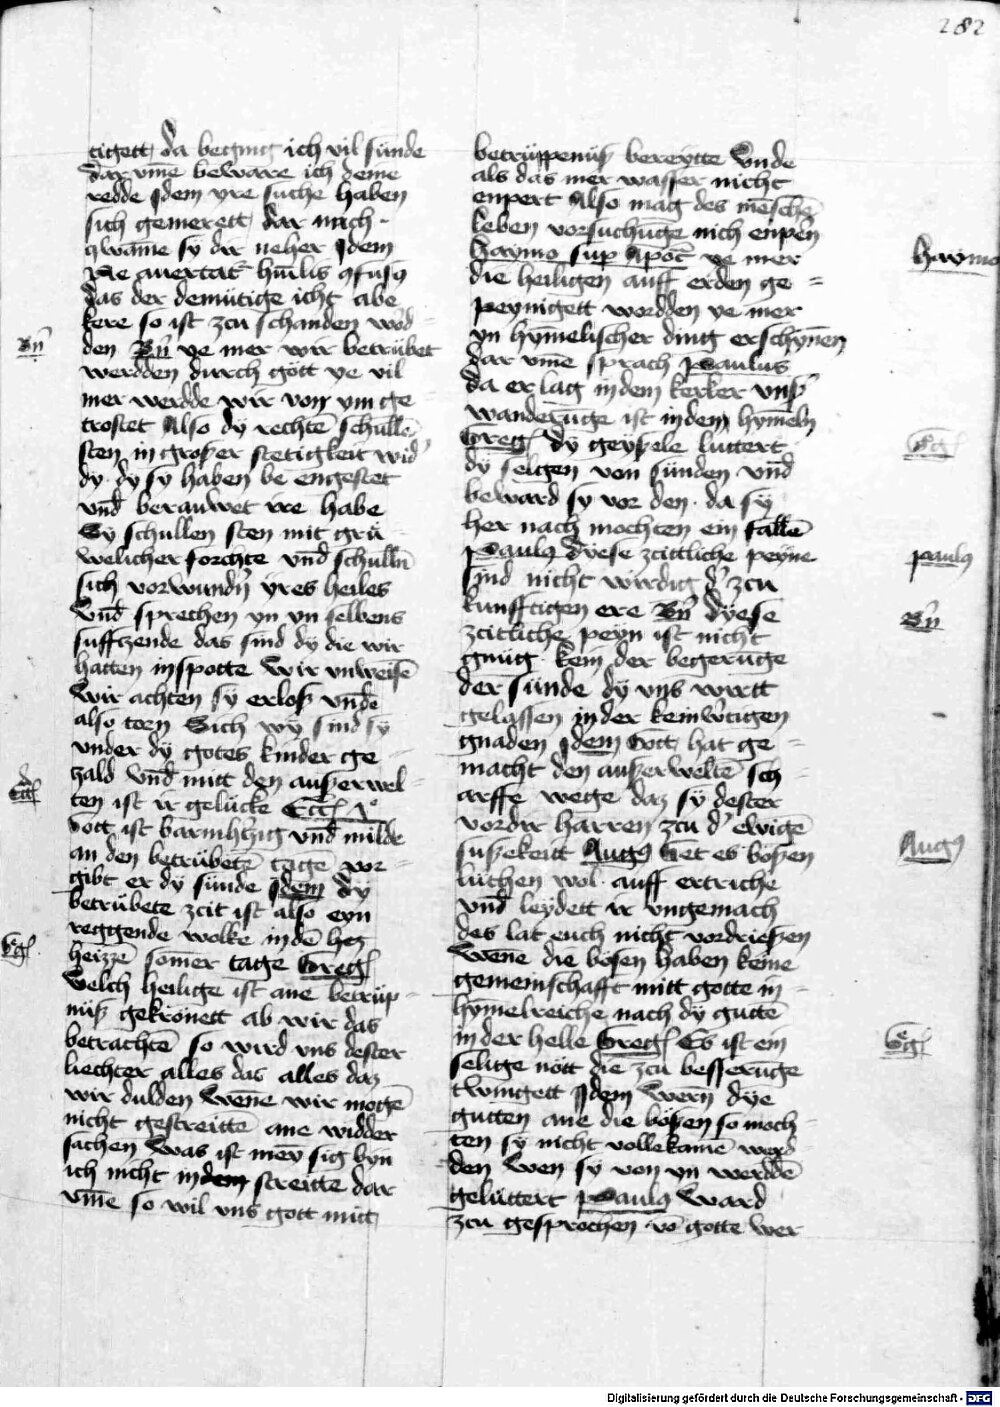 282
tigett da beging ich vil sunde
dar vm̄e beware ich deme
redde Jdem yre suche haben
sich gemerett dar nach ·
qwāme sy dir neher Jdem
Ne auertat hūilis ꝯfusꝯ
das der demütige icht abe
kere so ist zcu schanden word=
den Bn̄ ye mer wir betrübet
werdden durch gott ye vil
mer werdde wir von ym ge
trostet Also dy rechtē schullē
sten in groszer stetigkeit wid'
dy · dy sy haben be engestet
vnd̄ berauwet ire habe
Sy schullen sten mit grü
welicher forchte vnd̄ schulln̄
sich vorwundn̄ yres heiles
Vnd̄ sprechen yn yn selbens
sufftzende das sind dy die wir
hatten in spotte Wir vnweisē
Wir achten sy erlosz vnde
also torn Sich wy sind sy
vnder dy gotes kinder ge
zald Vnd̄ mitt den auszerwel=
ten ist ir gelücke Eccl
Gott ist barmh'tzig vnd̄ milde
an den betrübetē tage vor=
gibt er dy sünde Jdem dy
betrübete zcit ist also eyn
reggende wolke in dē
heizzē somer tage Greg
Welch heilige ist ane betrüp=
nüsz gekrönett ab wir das
betrachtē so wird vns dester
liechter alles das alles daz
wir dulden Wene wir mogē
nicht gestreittē ane widder
sachen Was ist mey sig byn
ich nicht in dem streitte dar
vm̄e so wil vns gott mitt
Bn̄
Eccl
Greg
betrüppenüsz bereytte Vnde
als das mer wasser nicht
enpert Also mag des mēschē
leben vorsuchūge nich enpern̄
Haymo sup Apoc̄ ye mer
die heiligen auff erden ge=
peynigett wordden ye mer
yn hȳmelischer ding erschynēn
dar vm̄e sprach Paulus
da er lag in dem kerker vnsz'
wanderūge ist in dem hȳmeln
Greg dy geyszele luttert
dy seligen von sünden vnd̄
beward sy vor den · da sy
her nach mochten ein fallē
Paulꝯ Dyese zcittliche peyne
sind nicht wirdig d' zcu
kunfftigen ere Bn̄ dyese
zcitliche peyn ist nicht
gnüg · kein der begerūge
der sünde dy vns wirtt
gelassen in der keinw'tigen
gnaden Jdem Gott hat ge=
macht den auszerweltē sch
arffe wege daz sy dester
vordir harren zcu d' ewigē
suszekeitt Augꝯ Get es böszen
lüthen wol · auff ertriche
vnd̄ leydett ir vngemach
des lat euch nicht vordrieszen
Wēne die bosen haben keine
gemeinschafft mitt gotte in=
hȳmelreiche nach dy guttē
in der helle Greg Es ist ein
selige nött die zcu besserūge
twingett Jdem Wern̄ dye
gutten ane die böszen so moch=
ten sy nicht vollekamē werd
den Wen sy von yn werddē
gelüttert Paulꝯ Ward
zcu gesprochen vō gotte wer
Haymo
Greg
paulꝯ
Bn̄
Augꝯ
Greg
Digitalisierung gefördert durch die Deutsche Forschungsgemeinschaft - DFG